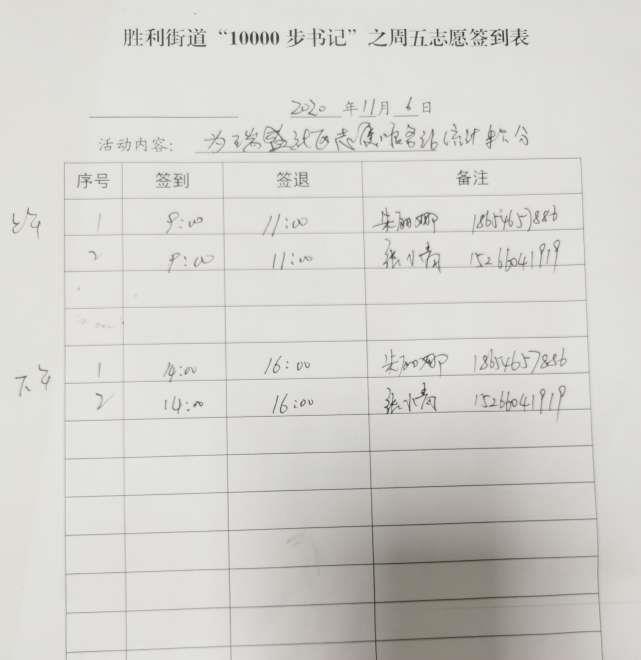 胜利街道“10000步书记”之周五志愿签到表
2020年11月6日
活动内容：为瑞盛社区志愿服务站统计积分
序号 签到 签退 备注
上午 1 9:00 11:00 朱丽娜 18654657886
2 9:00 11:00 张小青 15266041919
下午 1 14:00 16:00 朱丽娜 18654657886
2 14:00 16:00 张小青 15266041919